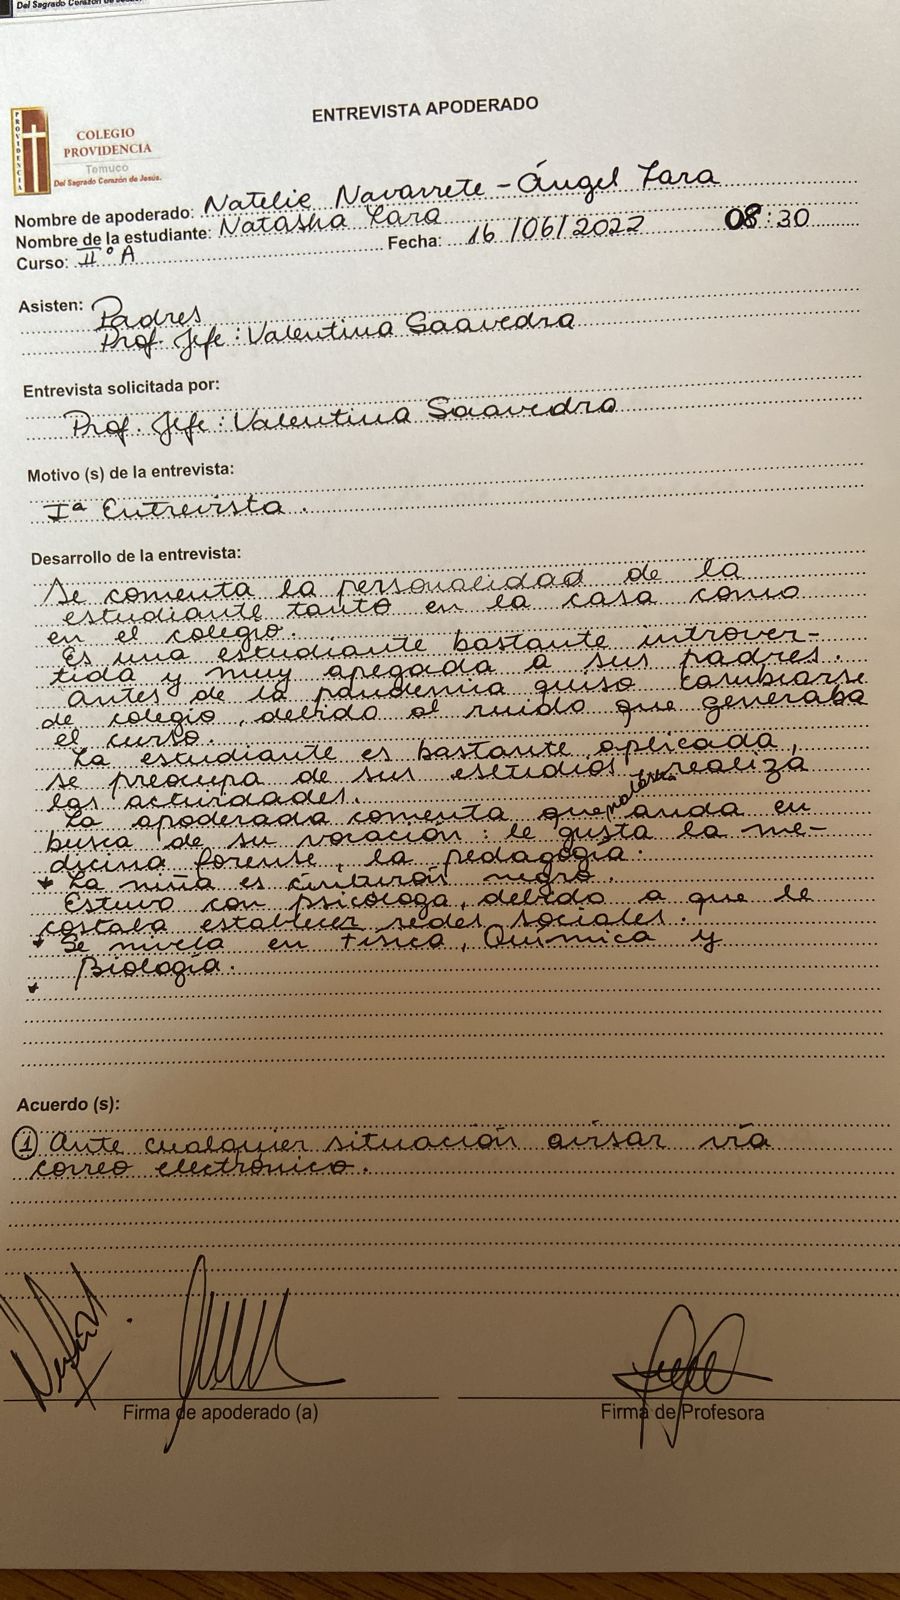 Del Sagrado Corazón de Jesús.
ENTREVISTA APODERADO
PROVIDENCIA
COLEGIO
PROVIDENCIA
Temuco
Del Sagrado Corazón de Jesús.
Nombre de apoderado: Natalie Navarrete - Ángel Lara
Nombre de la estudiante: Natasha Lara
Curso: II° A Fecha: 16/06/2022 08:30
Asisten: Padres
Prof. Jefe: Valentina Saavedra
Entrevista solicitada por:
Prof. Jefe: Valentina Saavedra
Motivo (s) de la entrevista:
Iª Entrevista.
Desarrollo de la entrevista:
Se comenta la personalidad de la
estudiante tanto en la casa como
en el colegio.
Es una estudiante bastante introver-
tida y muy apegada a sus padres.
Antes de la pandemia quiso cambiarse
de colegio, debido al ruido que generaba
el curso.
La estudiante es bastante aplicada,
se preocupa de sus estudios, realiza
las actividades.
La apoderada comenta que Natasha anda en
busca de su vocación: le gusta la me-
dicina forense, la pedagogía.
* La niña es cinturón negro.
Estuvo con psicóloga, debido a que le
costaba establecer redes sociales.
* Se nivela en Física, Química y
Biología.
*
Acuerdo (s):
① Ante cualquier situación avisar vía
correo electrónico.
Firma de apoderado (a) Firma de Profesora